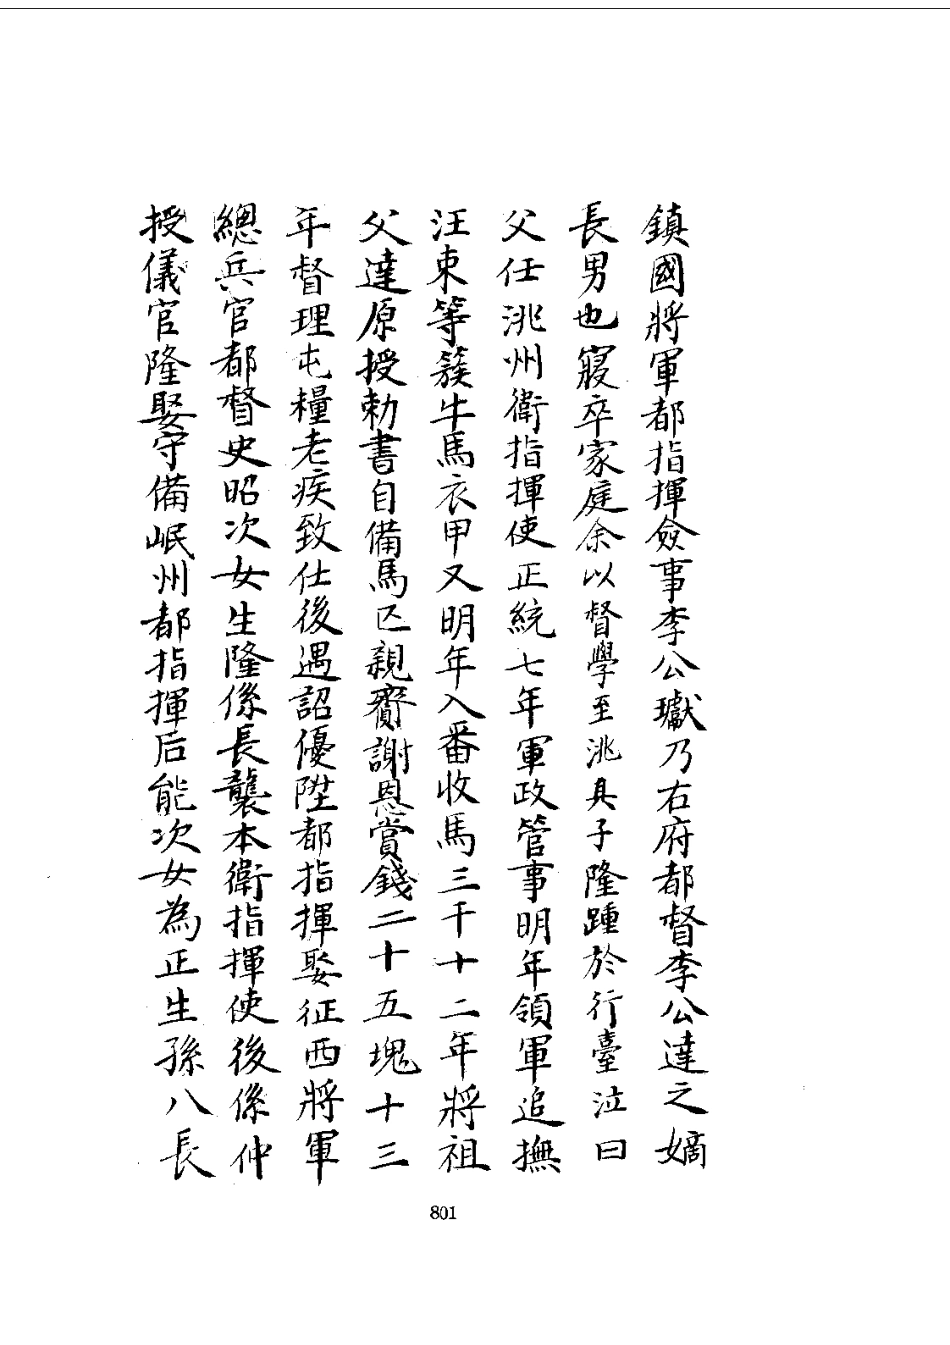 鎮國將軍都指揮僉事李公瓛乃右府都督李公達之嫡
長男也寢卒家庭余以督學至洮具子隆踵於行臺泣曰
父任洮州衛指揮使正統七年軍政管事明年領軍追撫
汪束等簇牛馬衣甲又明年入番收馬三千十二年將祖
父達原授勅書自備馬匹親賫謝恩賞錢二十五塊十三
年督理屯糧老疾致仕後遇詔優陞都指揮娶征西將軍
總兵官都督史昭次女生隆係長襲本衛指揮使後係仲
授儀官隆娶守備岷州都指揮后能次女為正生孫八長
801